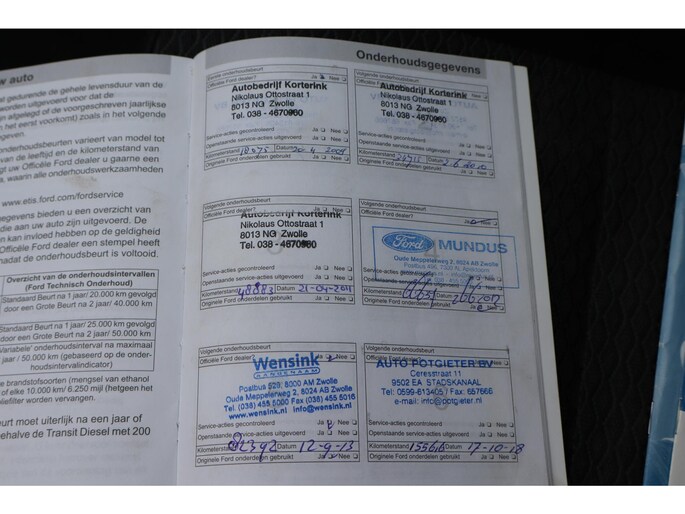 w auto
al gedurende de gehele levensduur van de
worden uitgevoerd voor dat de
afgelegd of de voorgeschreven jaarlijkse
het eerst voorkomt) zoals in het volgende
geven.
onderhoudsbeurten varieert van model tot
van de leeftijd en de kilometerstand van
gt uw Officiële Ford dealer u gaarne een
n, waarin alle onderhoudswerkzaamheden
www.etis.ford.com/fordservice
gegevens bieden u een overzicht van
aan uw auto zijn uitgevoerd. De
n kan invloed hebben op de geldigheid
Officiële Ford dealer een stempel heeft
nadat de onderhoudsbeurt is voltooid.
Overzicht van de onderhoudsintervallen
(Ford Technisch Onderhoud)
Standaard Beurt na 1 jaar/ 20.000 km gevolgd
door een Grote Beurt na 2 jaar/ 40.000 km
Standaard Beurt na 1 jaar/ 25.000 km gevolgd
door een Grote Beurt na 2 jaar/ 50.000 km
'Variabele' onderhoudsinterval na maximaal
jaar / 50.000 km (gebaseerd op de onder-
houdsintervalindicator)
de brandstofsoorten (mengsel van ethanol
of elke 10.000 km/ 6.250 mijl (hetgeen het
oliefilter worden vervangen.
urt moet uiterlijk na een jaar of
behalve de Transit Diesel met 200
Onderhoudsgegevens
Eerste onderhoudsbeurt
Officiële Ford dealer? Ja Nee
Autobedrijf Korterink
Nikolaus Ottostraat 1
8013 NG Zwolle
Tel. 038 - 4670960
Service-acties gecontroleerd Ja Nee
Openstaande service-acties uitgevoerd Ja Nee
Kilometerstand 18075 Datum 20-4 2009
Originele Ford onderdelen gebruikt Ja Nee
Volgende onderhoudsbeurt
Officiële Ford dealer? Ja Nee
Autobedrijf Korterink
Nikolaus Ottostraat 1
8013 NG Zwolle
Tel. 038 - 4670960
Service-acties gecontroleerd Ja Nee
Openstaande service-acties uitgevoerd Ja Nee
Kilometerstand Datum
Originele Ford onderdelen gebruikt Ja Nee
Volgende onderhoudsbeurt
Officiële Ford dealer? Ja Nee
Autobedrijf Korterink
Nikolaus Ottostraat 1
8013 NG Zwolle
Tel. 038 - 4670960
Service-acties gecontroleerd Ja Nee
Openstaande service-acties uitgevoerd Ja Nee
Kilometerstand 48883 Datum 21-04-2011
Originele Ford onderdelen gebruikt Ja Nee
Volgende onderhoudsbeurt
Officiële Ford dealer? Ja Nee
Ford MUNDUS
Oude Meppelerweg 2, 8024 AB Zwolle
Service-acties gecontroleerd
Openstaande service-acties uitgevoerd Ja Nee
Kilometerstand Datum
Originele Ford onderdelen gebruikt Ja Nee
Volgende onderhoudsbeurt
Officiële Ford dealer? Ja Nee
Wensink
Postbus 529, 8000 AM Zwolle
Oude Meppelerweg 2, 8024 AB Zwolle
Tel. (038) 455 5000 Fax (038) 455 5016
www.wensink.nl info@wensink.nl
Service-acties gecontroleerd Ja Nee
Openstaande service-acties uitgevoerd Ja Nee
Kilometerstand 82392 Datum 12-9-13
Originele Ford onderdelen gebruikt Ja Nee
Volgende onderhoudsbeurt
Officiële Ford dealer? Ja Nee
AUTO POTGIETER BV
Ceresstraat 11
9502 EA STADSKANAAL
Tel: 0599-613405 / Fax: 657666
e-mail: info@potgieter.nl
Service-acties gecontroleerd Ja Nee
Openstaande service-acties uitgevoerd Ja Nee
Kilometerstand Datum 17-10-18
Originele Ford onderdelen gebruikt Ja Nee